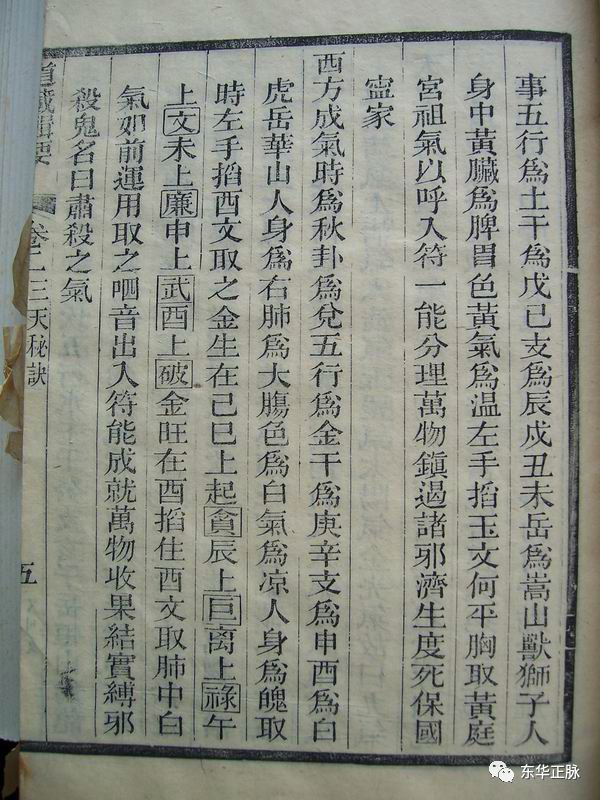 事五行爲土干爲戊己支爲辰戌丑未岳爲嵩山獸獅子人
身中黃臟爲脾胃色黃氣爲温左手掐玉文何平胸取黃庭
宮祖氣以呼入符一能分理萬物鎭遏諸邪濟生度死保國
寍家
西方成氣時爲秋卦爲兌五行爲金干爲庚辛支爲申酉爲白
虎岳華山人身爲右肺爲大腸色爲白氣爲凉人身爲魄取
時左手掐酉文取之金生在己巳上起貪辰上巨离上祿午
上文未上廉申上武酉上破金旺在酉掐住酉文取肺中白
氣如前運用取之呬音出入符能成就萬物收果結實縛邪
殺鬼名曰肅殺之氣
道藏輯要 卷二三天秘訣 五
东华正脉